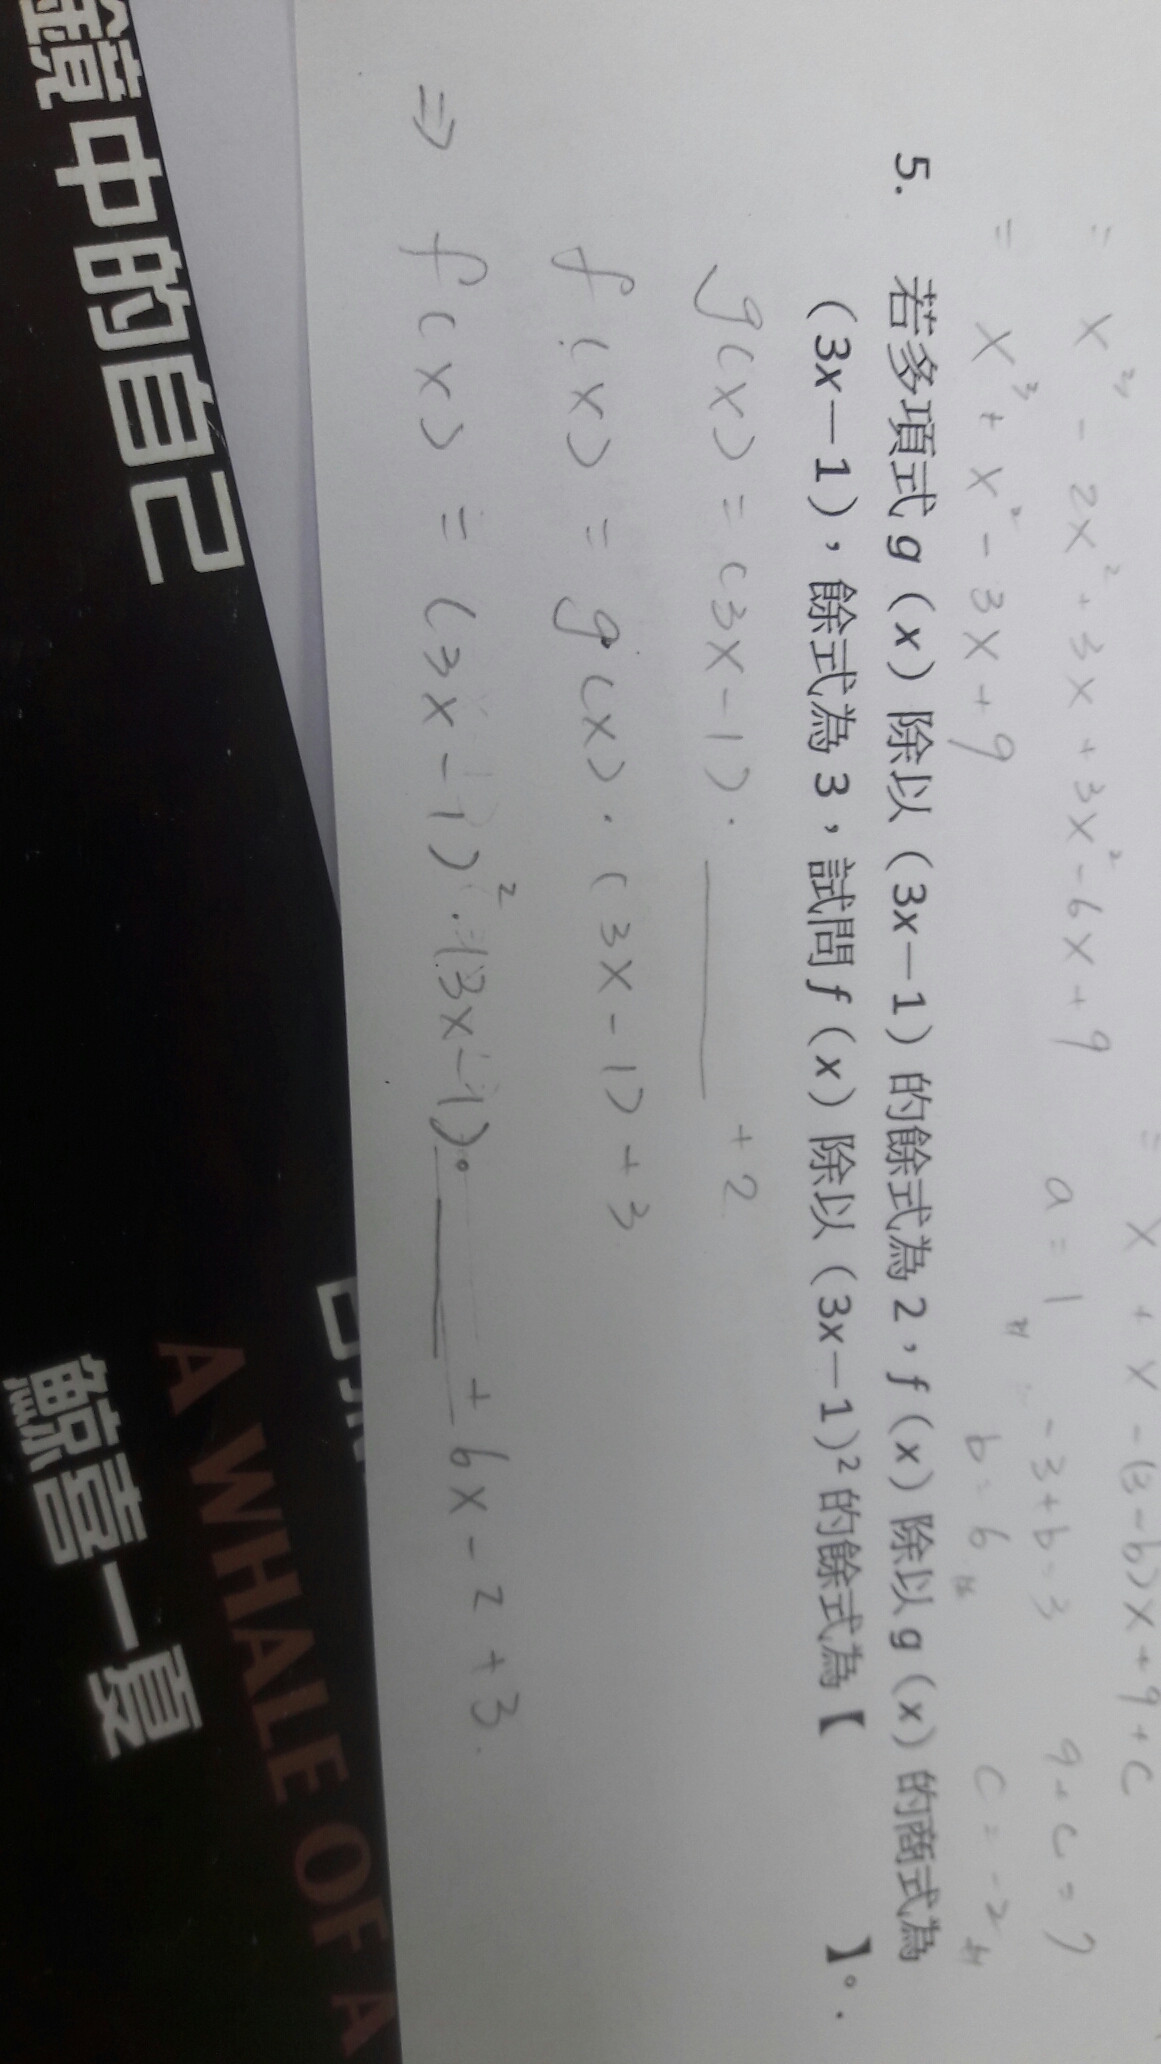 = x³ - 2x² + 3x + 3x² - 6x + 9
= x³ + x² - 3x + 9
a = 1
-3+b=3
b = 6
9+c=7
c = -2
5. 若多項式 g(x) 除以 (3x-1) 的餘式為 2，f(x) 除以 g(x) 的商式為
(3x-1)，餘式為 3，試問 f(x) 除以 (3x-1)² 的餘式為【 】。
g(x) = (3x-1). ____ +2
f(x) = g(x).(3x-1)+3
⇒ f(x) = (3x-1)². ____ + 6x-2+3.
鏡中的自己
A WHALE OF A
鯨喜一夏